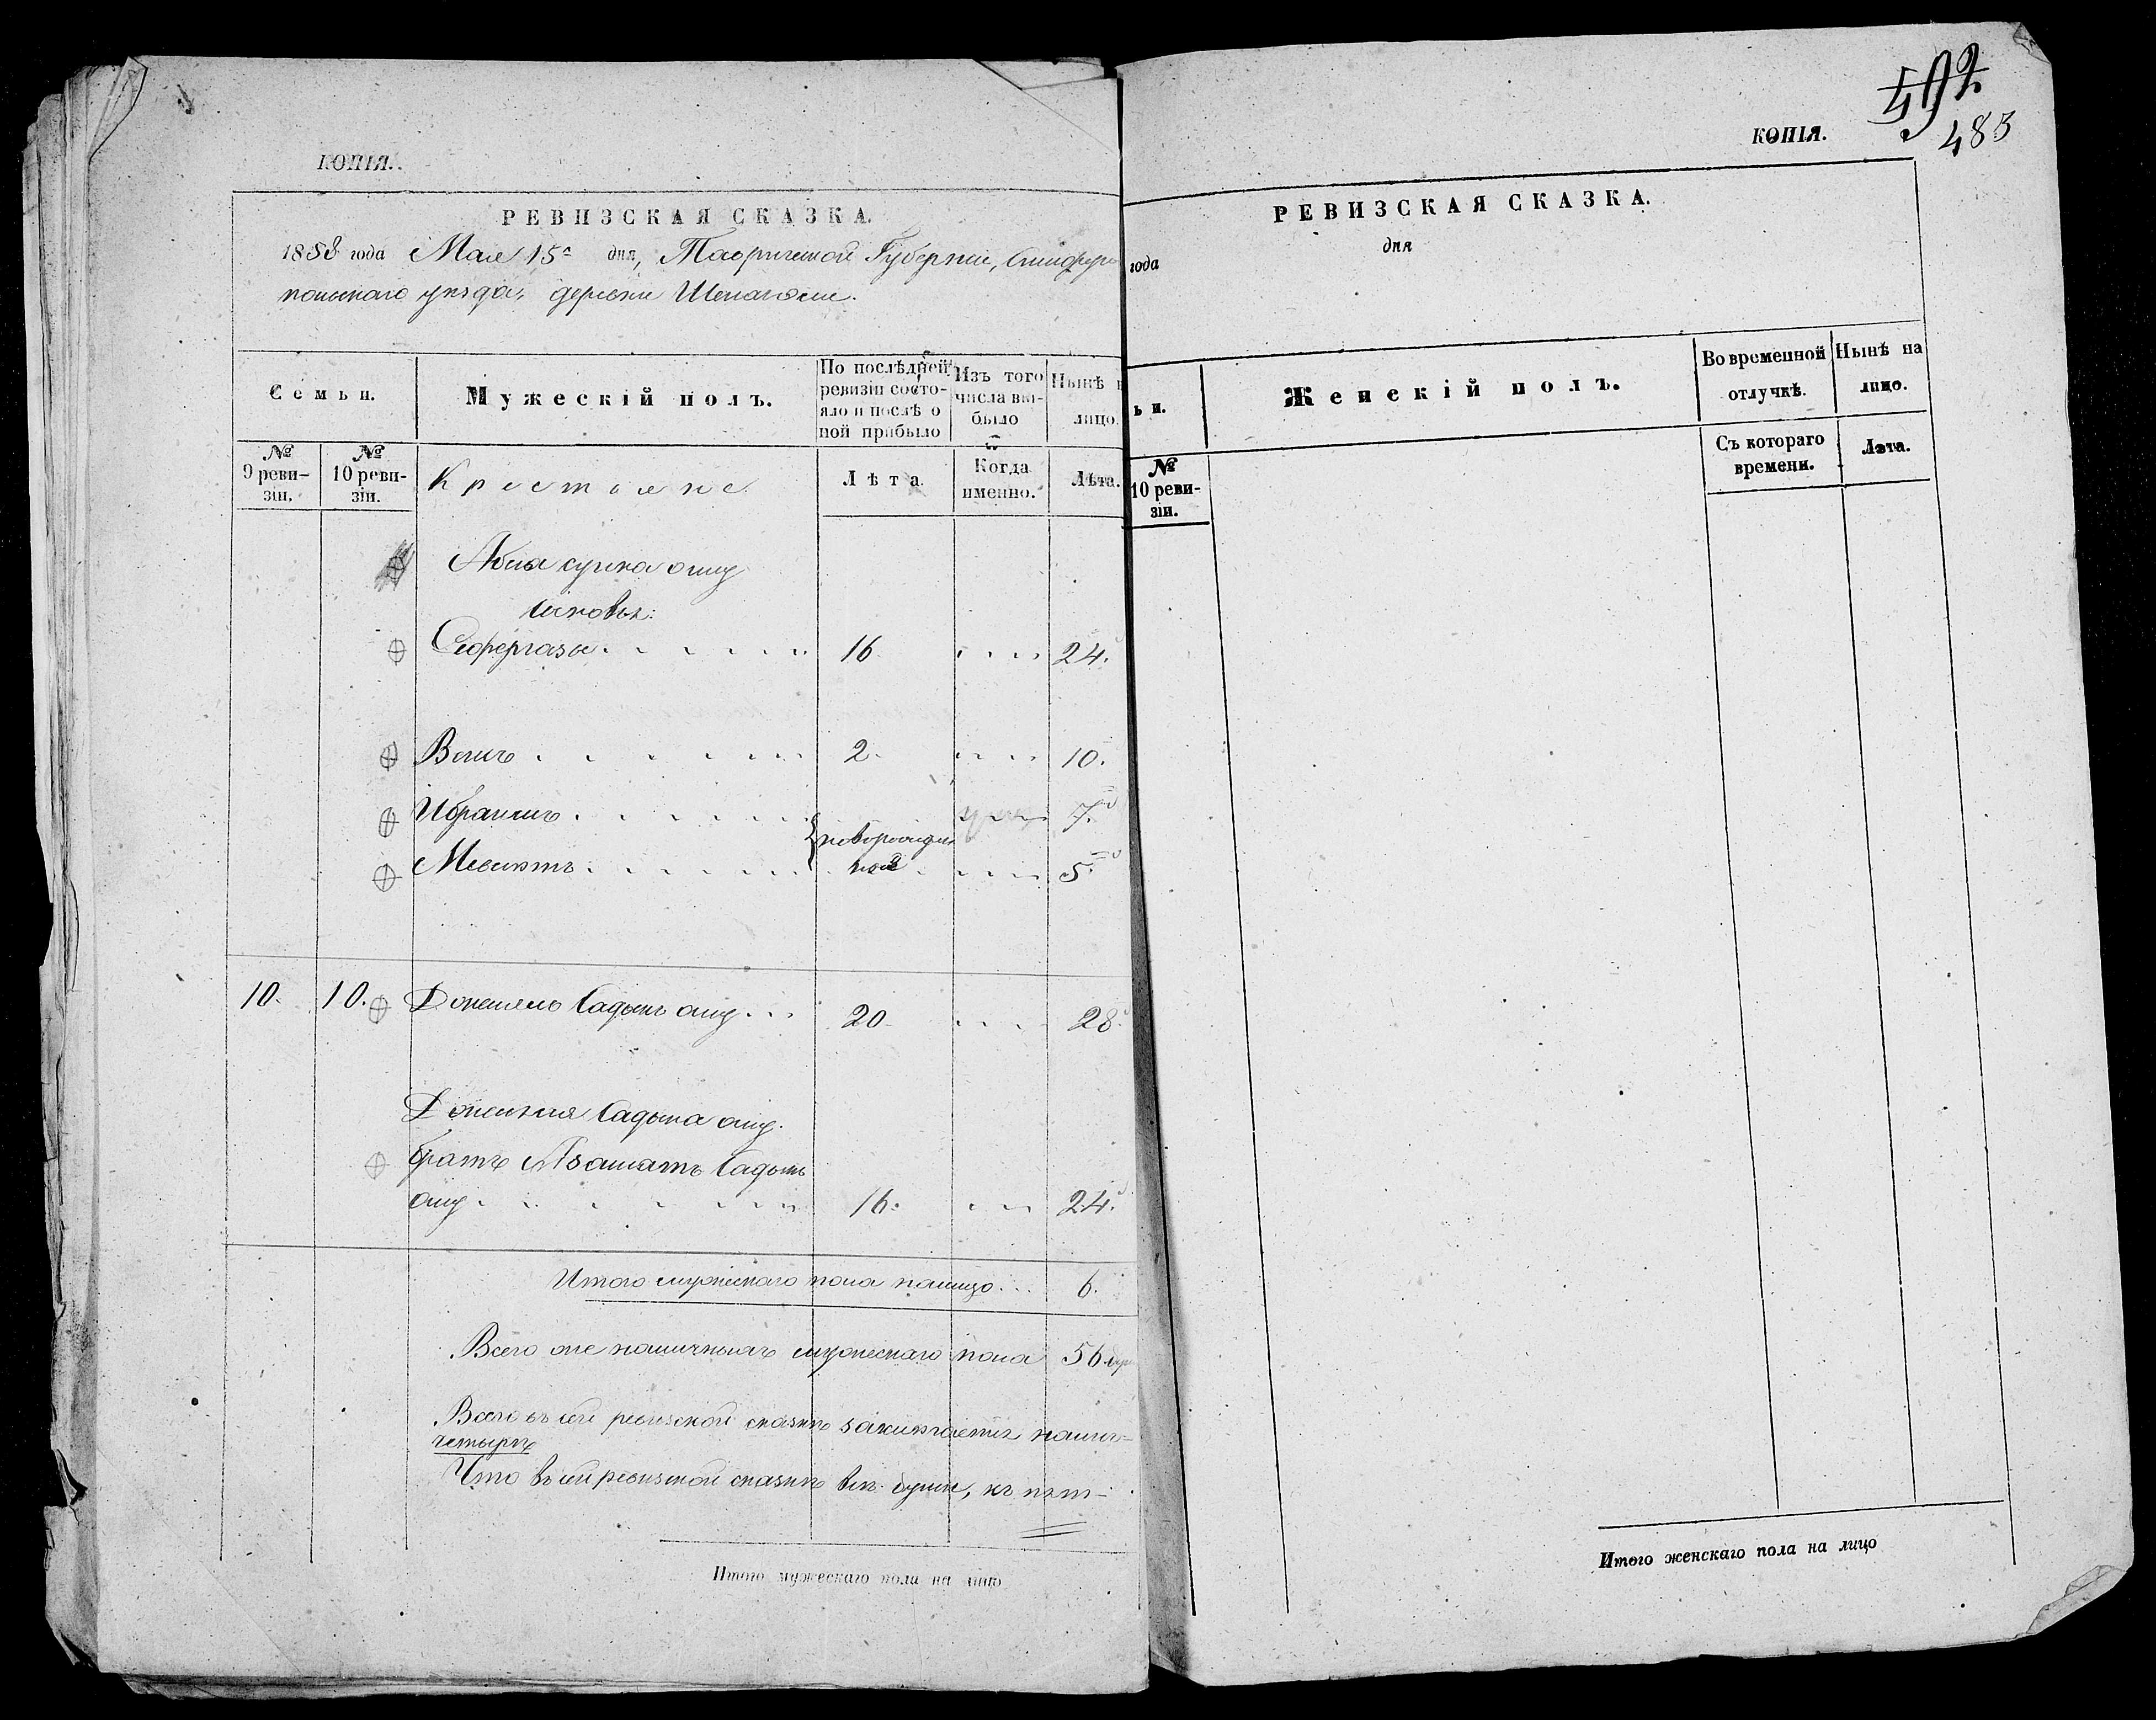 КОПІЯ.
РЕВИЗСКАЯ СКАЗКА.
1858 года Мая 15го дня, Таврической Губерніи, Симферо
польскаго уѣзда, деревни
Семьи.
Мужескій полъ.
По послѣдней
ревизіи состо-
яло и послѣ о
ной прибыло
Изъ того
числа вы-
было
Нынѣ н
лицо.
№
9 реви-
зіи.
№
10 реви-
зіи.
Крестьяне
Лѣта.
Когда
именно.
Лѣта.
оглу
сыновья:
Сеферъгазы . . . . . . 16 . . . . 24.
Велиъ . . . . . . 2. . . . . 10.
Ибраимъ . . . . . 7.
новорожден
ные
Мевлютъ . . . . . . 5.
10. 10. Садыкъ оглу . . . 20 . . . . 28.
Садыка оглу
братъ Садыкъ
оглу . . . . . . 16. . . . 24.
Итого мужескаго пола налицо . . . 6.
Всего же наличныхъ мужескаго пола 56
Всего въ сей ревизской сказкѣ заключается
четыре
Что въ сей ревизской сказкѣ всѣ души, къ
Итого мужескаго пола на лицо
592
483
КОПІЯ.
РЕВИЗСКАЯ СКАЗКА.
года дня
ьи.
Женскій полъ.
Во временной
отлучкѣ.
Нынѣ на
лицо.
№
10 реви-
зіи.
Съ котораго
времени.
Лѣта.
Итого женскаго пола на лицо